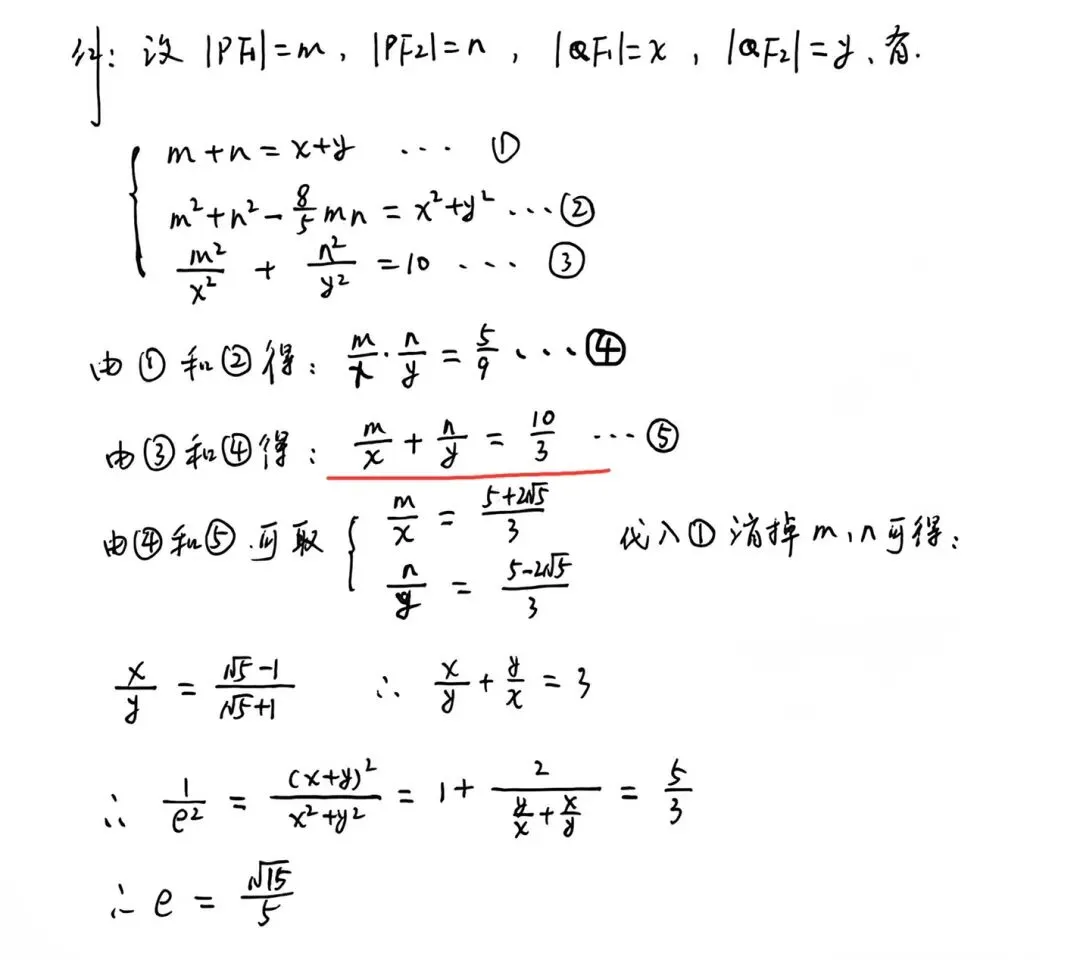 解: 设 |PF₁|=m, |PF₂|=n, |QF₁|=x, |QF₂|=y, 有.
m+n=x+y ... ①
m²+n²-8/5mn=x²+y² ... ②
m²/x² + n²/y² =10 ... ③
由①和②得: m/x · n/y = 5/9 ... ④
由③和④得: m/x + n/y = 10/3 ... ⑤
由④和⑤.可取 { m/x = (5+2√5)/3 n/y = (5-2√5)/3 代入①消掉m,n可得:
x/y = (√5-1)/(√5+1) ∴ x/y + y/x = 3
∴ 1/e² = (x+y)²/(x²+y²) = 1+ 2/(y/x + x/y) = 5/3
∴ e = √15/5